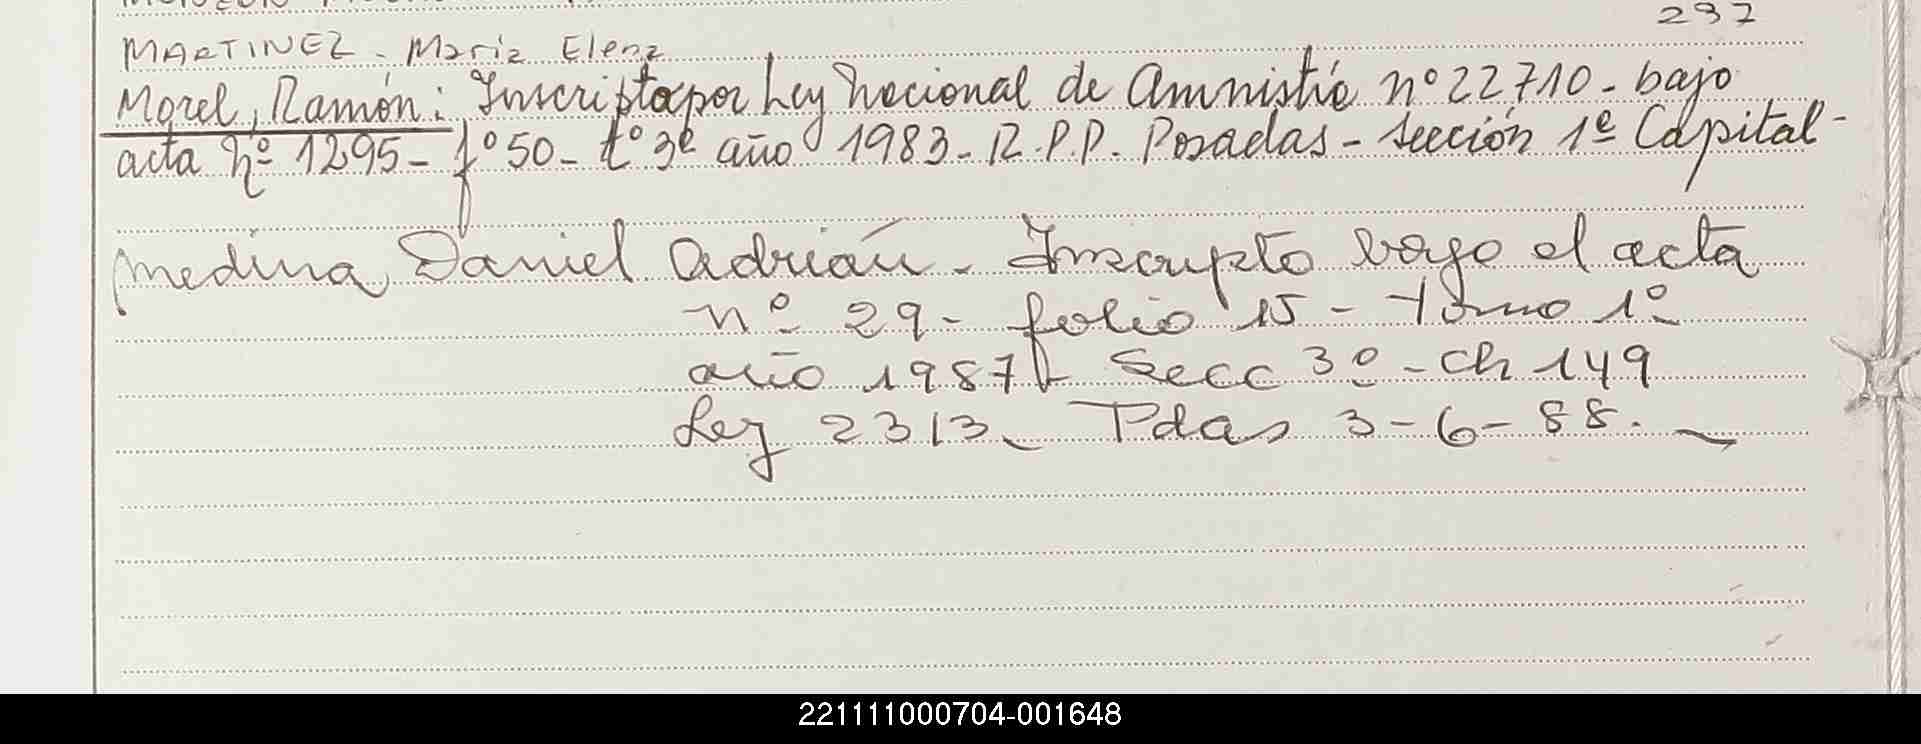 237
MARTINEZ - Maria Elena
Morel, Ramón: Inscripto por Ley Nacional de Amnistía nº 22710 - bajo
acta Nº 1295 - fº 50 - tº 3º año 1983 - R.P.P. Posadas - Sección 1ª Capital -
Medina Daniel Adrián - Inscripto bajo el acta
nº 29 - folio 15 - tomo 1º
año 1987 - Secc 3º - Ch 149
Ley 2313 - Pdas 3-6-88.
221111000704-001648